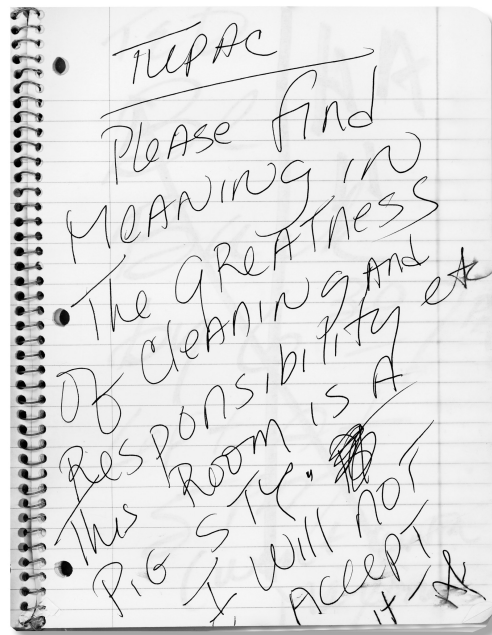 TUPAC
Please find
Meaning in
The Greatness
Of cleaning and
Responsibility etc
This Room is A
Pig Sty."
I will not
Accept
it -